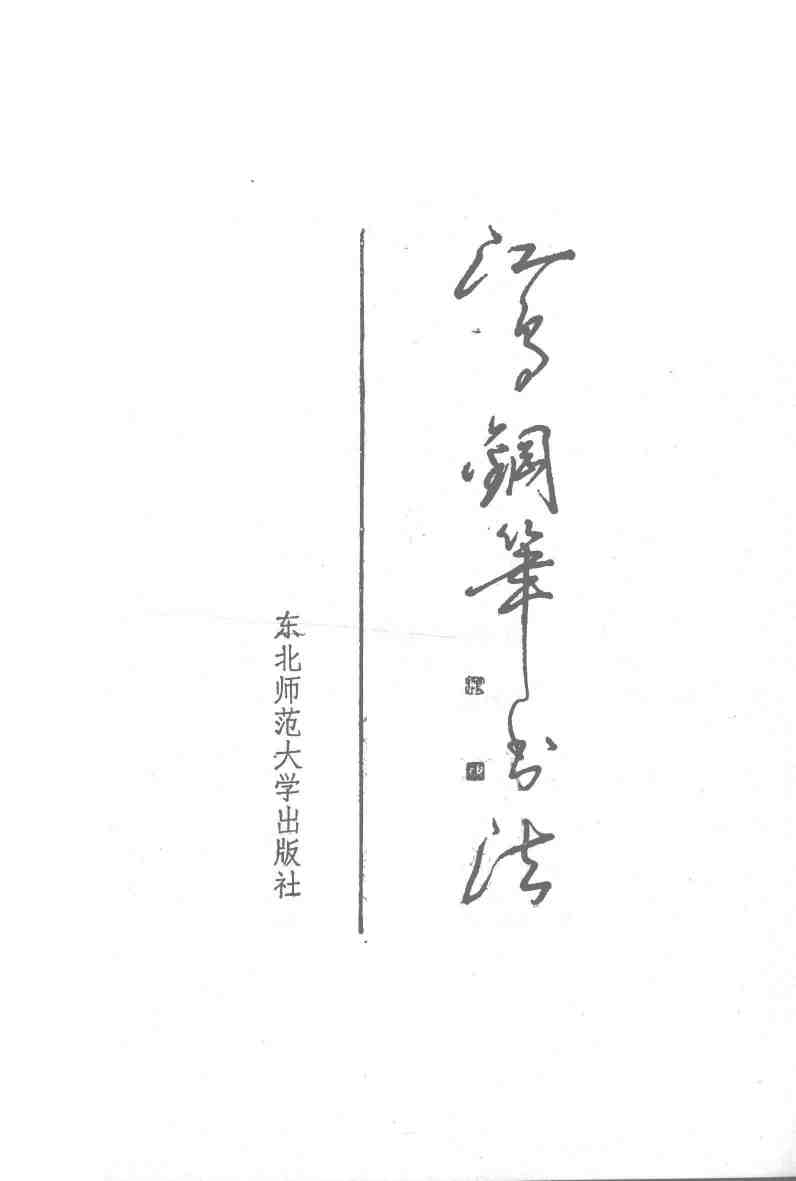 江鸟鋼筆书法
东北师范大学出版社